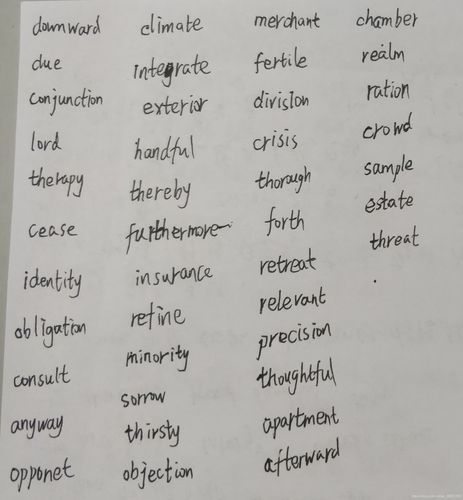 downward climate merchant chamber
due integrate fertile realm
conjunction exterior division ration
lord handful crisis crowd
therapy thereby thorough sample
cease furthermore forth estate
identity insurance retreat threat
obligation refine relevant
consult minority precision
anyway sorrow thoughtful
opponet thirsty apartment
objection afterward